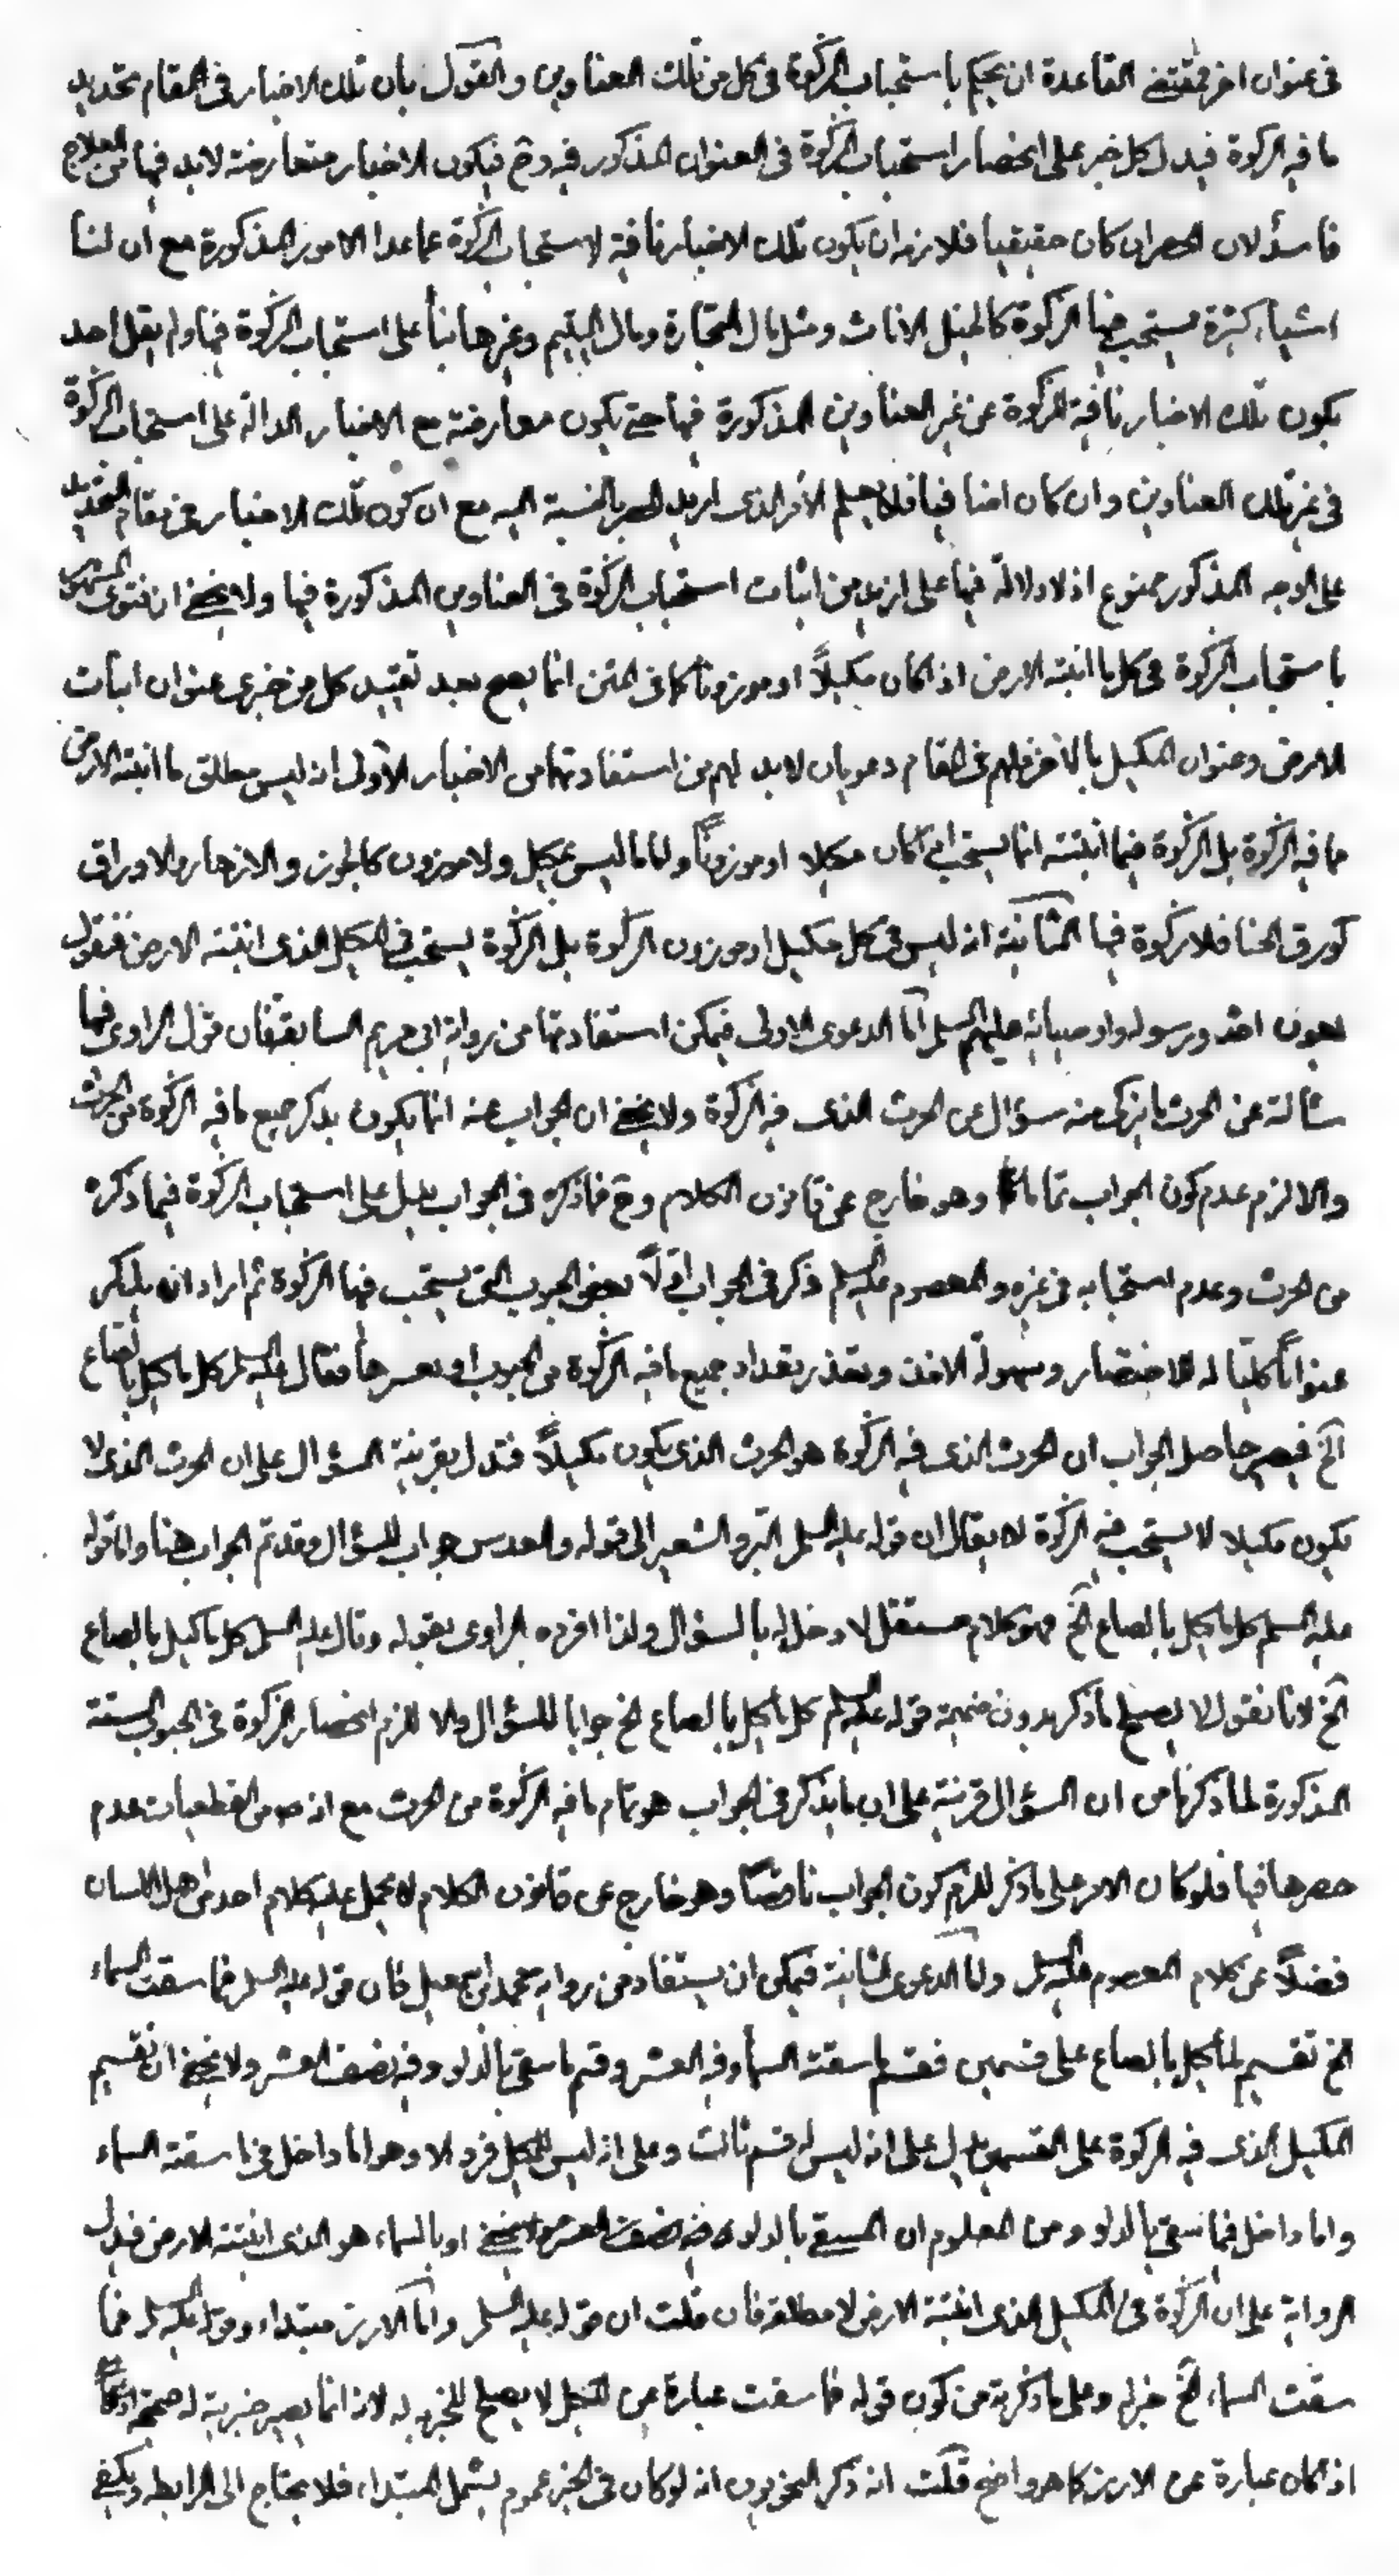 فى عنوان اخر فمقتضى القاعدة ان يحكم باستحباب الزكوة فى كل من تلك العناوين والقول بان تلك الاخبار فى المقام تحديد
ما فيه الزكوة فيدل كل خبر على انحصار استحباب الزكوة فى العنوان المذكور فيه وح فيكون الاخبار متعارضة لابد فيها من العلاج
فاسد لان الحصر ان كان حقيقيا فلازمه ان يكون تلك الاخبار نافية لاستحباب الزكوة عما عدا الامور المذكورة مع ان لنا
اشياء كثيرة يستحب فيها الزكوة كالخيل الاناث ومثل مال التجارة ومال اليتيم وغيرها بناً على استحباب الزكوة فيها ولم يقل احد
بكون تلك الاخبار نافية للزكوة عن غير العناوين المذكورة فيها حتى يكون معارضة مع الاخبار الدالة على استحباب الزكوة
فى غير تلك العناوين وان كان اضافيا فلا يعلم الامر الذى اريد الحصر بالنسبة اليه مع ان كون تلك الاخبار فى مقام التحديد
على الوجه المذكور ممنوع اذ لا دلالة فيها على ازيد من اثبات استحباب الزكوة فى العناوين المذكورة فيها ولا يخفى ان فتوى المشهور
باستحباب الزكوة فى كل ما انبتته الارض اذا كان مكيلاً او موزوناً كما فى المتن انما يصح بعد تقييد كل من خبرى عنوان انبات
الارض وعنوان المكيل بالاخر فلهم فى المقام دعويان لابد لهم من استفادتهما من الاخبار الاولى انه ليس مطلق ما انبتته الارض
ما فيه الزكوة بل الزكوة فيما انبتته انما يستحب اذا كان مكيلا او موزوناً واما ما ليس بمكيل ولا موزون كالجوز والازهار والاوراق
كورق الحنا فلا زكوة فيها الثانية انه ليس فى كل مكيل او موزون الزكوة بل الزكوة يستحب فى المكيل الذى انبتته الارض فنقول
بعون الله ورسوله واوصيائه عليهم السلم اما الدعوى الاولى فيمكن استفادتها من رواية ابى مريم السابقة فان قول الراوى فيها
سئالته عن الحرث ما يزكى منه سؤال عن الحرث الذى فيه الزكوة ولا يخفى ان الجواب عنه انما يكون بذكر جميع ما فيه الزكوة من الحرث
والا لزم عدم كون الجواب تماما وهو خارج عن قانون الكلام وح فما ذكره فى الجواب يدل على استحباب الزكوة فيما ذكره
من الحرث وعدم استحبابه فى غيره والمعصوم عليه السلم ذكر فى الجواب اولاً بعض الحبوب التى يستحب فيها الزكوة ثم اراد ان يذكر
عنواناً كليا له للاختصار وسهولة الاخذ وتعذر تعداد جميع ما فيه الزكوة من الحبوب او تعسرها فقال عليه السلم كل ما كيل بالصاع
الخ فيصير حاصل الجواب ان الحرث الذى فيه الزكوة هو الحرث الذى يكون مكيلاً فتدل بقرينة السؤال على ان الحرث الذى لا
يكون مكيلا لا يستحب فيه الزكوة لا يقال ان قوله عليه السلم البر والشعير الى قوله والعدس جواب للسؤال وقد تم الجواب هنا واما قوله
عليه السلم كل ما كيل بالصاع الخ فهو كلام مستقل لا دخل له بالسؤال ولذا افرده الراوى بقوله وقال عليه السلم كل ما كيل بالصاع
الخ لانا نقول لا يصلح ما ذكر بدون ضميمة قوله عليه السلم كل ما كيل بالصاع الخ جوابا للسؤال والا للزم انحصار الزكوة فى الحبوب الستة
المذكورة لما ذكرنا من ان السؤال قرينة على ان ما يذكر فى الجواب هو تمام ما فيه الزكوة من الحرث مع انه من القطعيات عدم
حصرها فيها فلو كان الامر على ما ذكر للزم كون الجواب ناقصاً وهو خارج عن قانون الكلام لا يحمل عليه كلام احد من اهل اللسان
فضلاً عن كلام المعصوم عليه السلم واما الدعوى الثانية فيمكن ان يستفاد من رواية محمد ابن اسمعيل فان قوله عليه السلم فما سقت السماء
الخ تقسيم لما كيل بالصاع على قسمين قسم ما سقته السماء وفيه العشر وقسم ما سقى بالدلو وفيه نصف العشر ولا يخفى ان تقسيم
المكيل الذى فيه الزكوة على القسمين يدل على انه ليس له قسم ثالث وعلى انه ليس للمكيل فرد الا وهو اما داخل فى ما سقته السماء
واما داخل فيما سقى بالدلو ومن المعلوم ان المسقى بالدلو او بالسماء هو الذى انبتته الارض فيدل
الرواية على ان الزكوة فى المكيل الذى انبتته الارض لا مطلقا فان قلت ان قوله عليه السلم واما الارز مبتداء وقوله عليه السلم فما
سقت السماء الخ خبر له وعلى ما ذكرته من كون قوله فما سقت عبارة عن المكيل لا يصلح للخبرية له لانه انما يصير خبرية له صحيحة
اذا كان عبارة عن الارز كما هو واضح قلت انه ذكر النحويون انه لو كان فى الخبر عموم يشمل المبتداء فلا يحتاج الى الرابط ويكفى